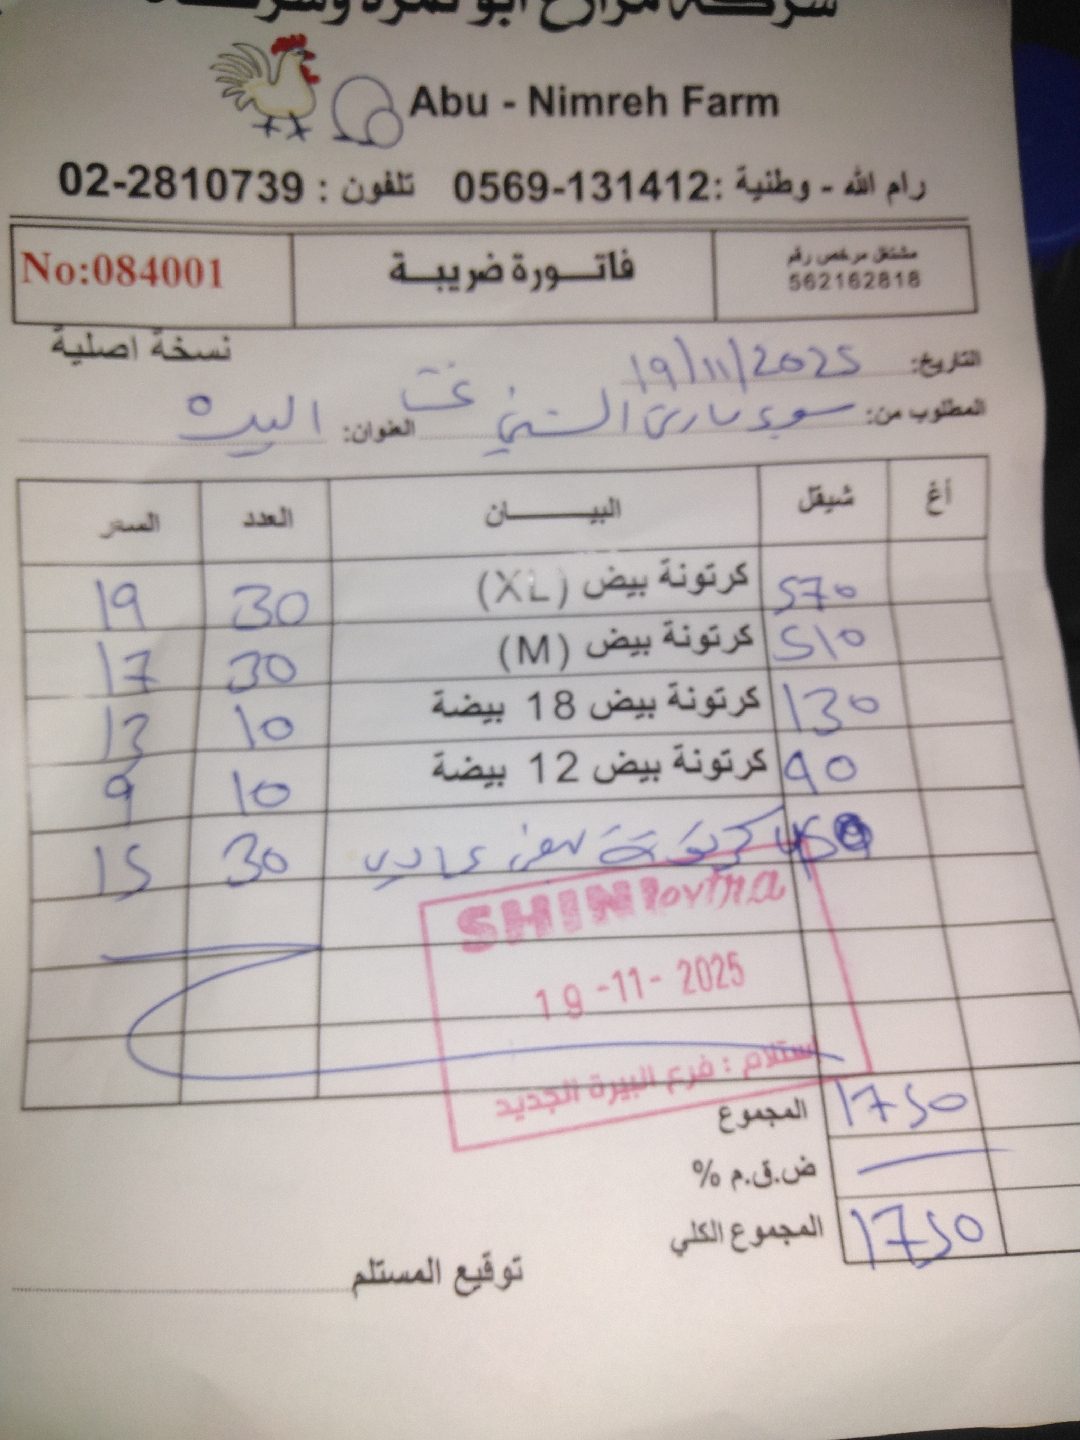 شركة مزارع أبو نمرة وشركاه
Abu - Nimreh Farm
رام الله - وطنية :0569-131412 تلفون : 02-2810739
مشتغل مرخص رقم
562162818
فاتورة ضريبة
No:084001
نسخة اصلية
التاريخ: 19/11/2025
المطلوب من: سوبر ماركت الشني العنوان: البيرة
أغ شيقل البيان العدد السعر
570 كرتونة بيض (XL) 30 19
510 كرتونة بيض (M) 30 17
130 كرتونة بيض 18 بيضة 10 13
90 كرتونة بيض 12 بيضة 10 9
450 كرتونة بيض عادي 30 15
SHINI extra
19 -11- 2025
استلام : فرع البيرة الجديد
المجموع 1750
ض.ق.م %
المجموع الكلي 1750
توقيع المستلم